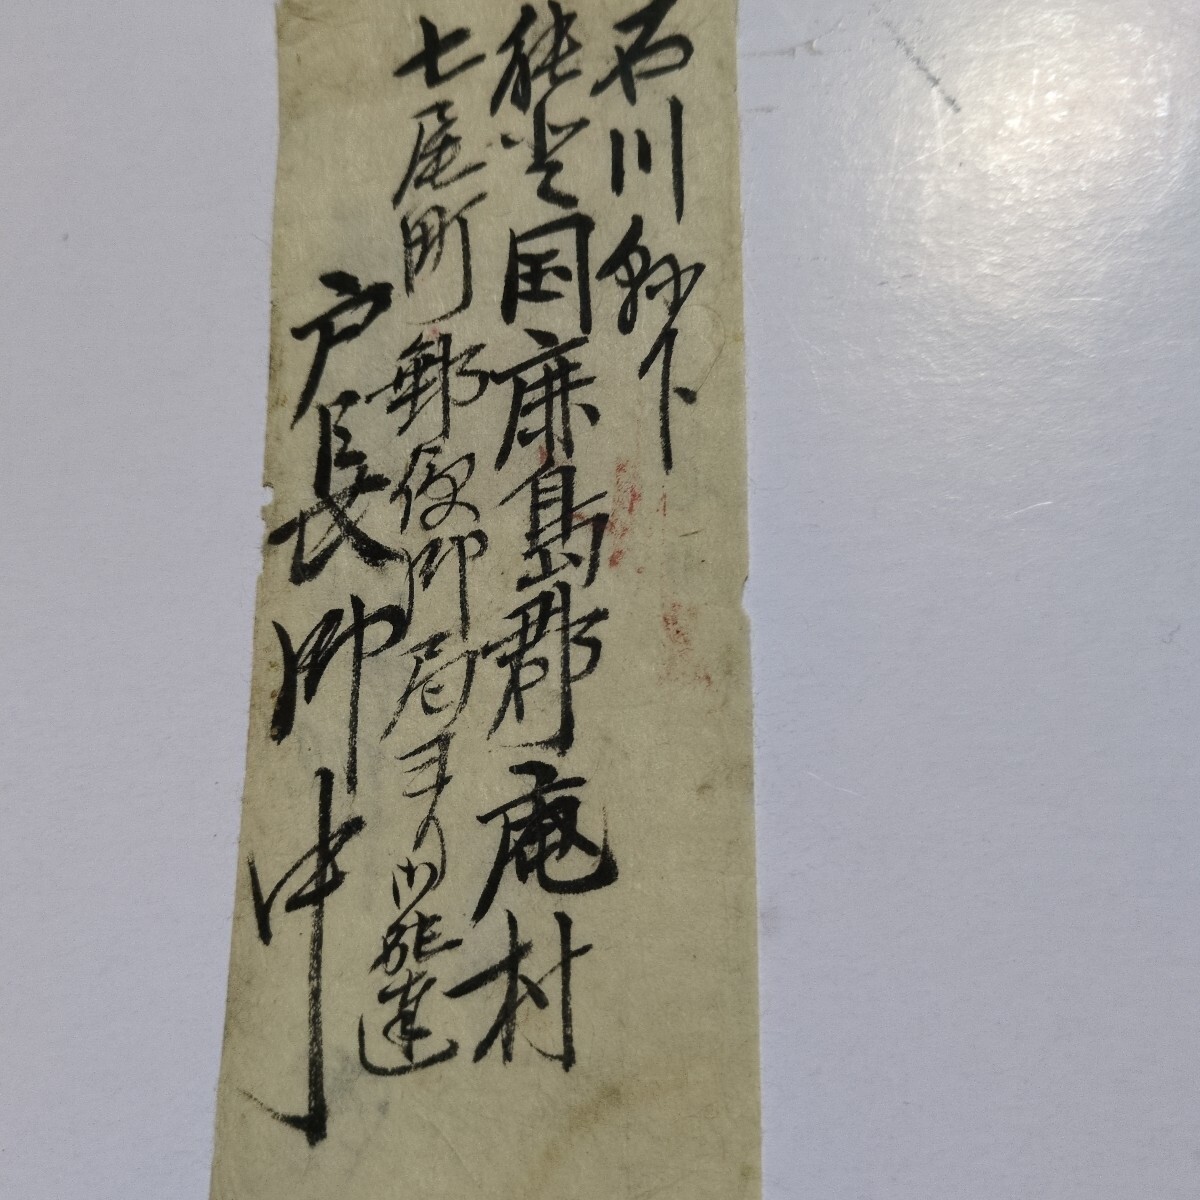 石川縣下
能登国鹿島郡庵村
七尾町郵便御局ヨリ御配達
戸長御中